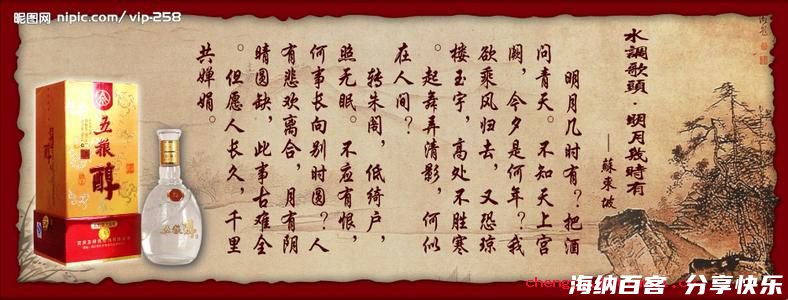 昵图网 nipic.com/vip-258
水調歌頭·明月幾時有
——蘇東坡
明月几时有？把酒
问青天。不知天上宫
阙，今夕是何年？我
欲乘风归去，又恐琼
楼玉宇，高处不胜寒
。起舞弄清影，何似
在人间？
转朱阁，低绮户，
照无眠。不应有恨，
何事长向别时圆？人
有悲欢离合，月有阴
晴圆缺，此事古难全
。但愿人长久，千里
共婵娟。
五粮醇
五粮醇
海纳百客 分享快乐